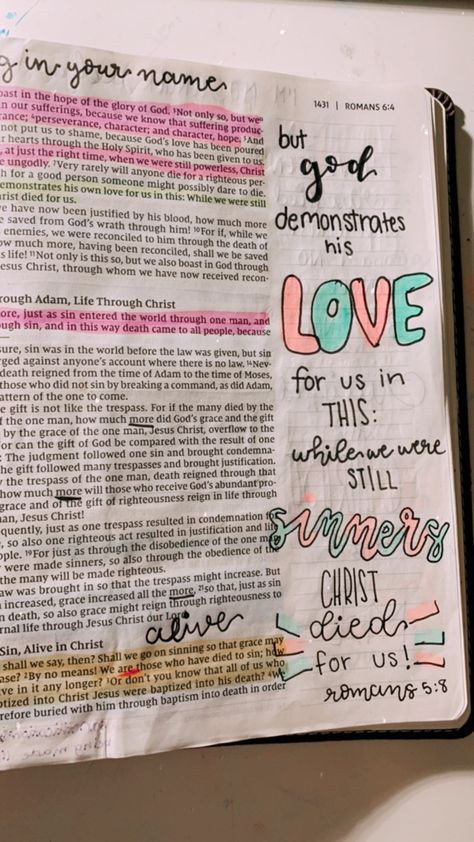 g in your name
1431 | ROMANS 6:4
oast in the hope of the glory of God. ³Not only so, but we
n our sufferings, because we know that suffering produc-
rance; ⁴perseverance, character; and character, hope. ⁵And
not put us to shame, because God's love has been poured
r hearts through the Holy Spirit, who has been given to us.
, at just the right time, when we were still powerless, Christ
e ungodly. ⁷Very rarely will anyone die for a righteous per-
h for a good person someone might possibly dare to die.
emonstrates his own love for us in this: While we were still
rist died for us.
ve have now been justified by his blood, how much more
e saved from God's wrath through him! ¹⁰For if, while we
enemies, we were reconciled to him through the death of
ow much more, having been reconciled, shall we be saved
s life! ¹¹Not only is this so, but we also boast in God through
esus Christ, through whom we have now received recon-
rough Adam, Life Through Christ
ore, just as sin entered the world through one man, and
ough sin, and in this way death came to all people, because
sure, sin was in the world before the law was given, but sin
rged against anyone's account where there is no law. ¹⁴Nev-
death reigned from the time of Adam to the time of Moses,
those who did not sin by breaking a command, as did Adam,
attern of the one to come.
e gift is not like the trespass. For if the many died by the
f the one man, how much more did God's grace and the gift
by the grace of the one man, Jesus Christ, overflow to the
or can the gift of God be compared with the result of one
: The judgment followed one sin and brought condemna-
he gift followed many trespasses and brought justification.
y the trespass of the one man, death reigned through that
how much more will those who receive God's abundant pro-
grace and of the gift of righteousness reign in life through
an, Jesus Christ!
equently, just as one trespass resulted in condemnation for
, so also one righteous act resulted in justification and life
ople. ¹⁹For just as through the disobedience of the one man
were made sinners, so also through the obedience of the
the many will be made righteous.
aw was brought in so that the trespass might increase. But
n increased, grace increased all the more, ²¹so that, just as sin
n death, so also grace might reign through righteousness to
rnal life through Jesus Christ our Lord.
alive
Sin, Alive in Christ
shall we say, then? Shall we go on sinning so that grace may
ase? ²By no means! We are those who have died to sin; how
ve in it any longer? ³Or don't you know that all of us who
ptized into Christ Jesus were baptized into his death? ⁴We
refore buried with him through baptism into death in order
but
god
demonstrates
his
LOVE
for us in
THIS:
while we were
STILL
sinners
CHRIST
died
for us!
romans 5:8